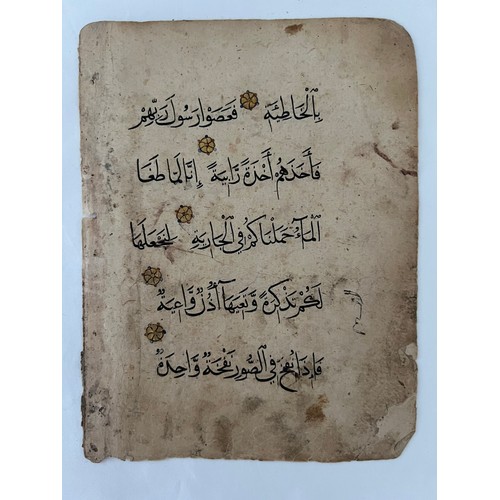 بِالْخَاطِئَةِ فَعَصَوْا رَسُولَ رَبِّهِمْ
فَأَخَذَهُمْ أَخْذَةً رَّابِيَةً إِنَّا لَمَّا طَغَا
الْمَآءُ حَمَلْنَاكُمْ فِي الْجَارِيَةِ لِنَجْعَلَهَا
لَكُمْ تَذْكِرَةً وَّتَعِيَهَآ أُذُنٌ وَّاعِيَةٌ
فَإِذَا نُفِخَ فِي الصُّورِ نَفْخَةٌ وَّاحِدَةٌ